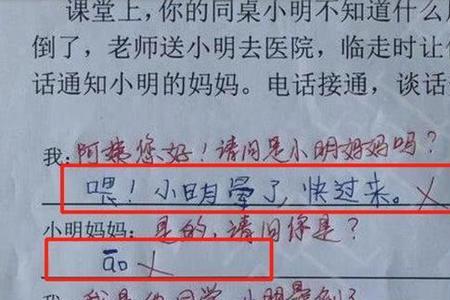 课堂上,你的同桌小明不知道什么
倒了,老师送小明去医院,临走时让
话通知小明的妈妈。电话接通,谈话
我:阿姨您好!请问是小明妈妈吗?
喂!小明晕了,快过来。
小明妈妈:是的,请问你是?
āo
我:我是他同学,小明晕倒了